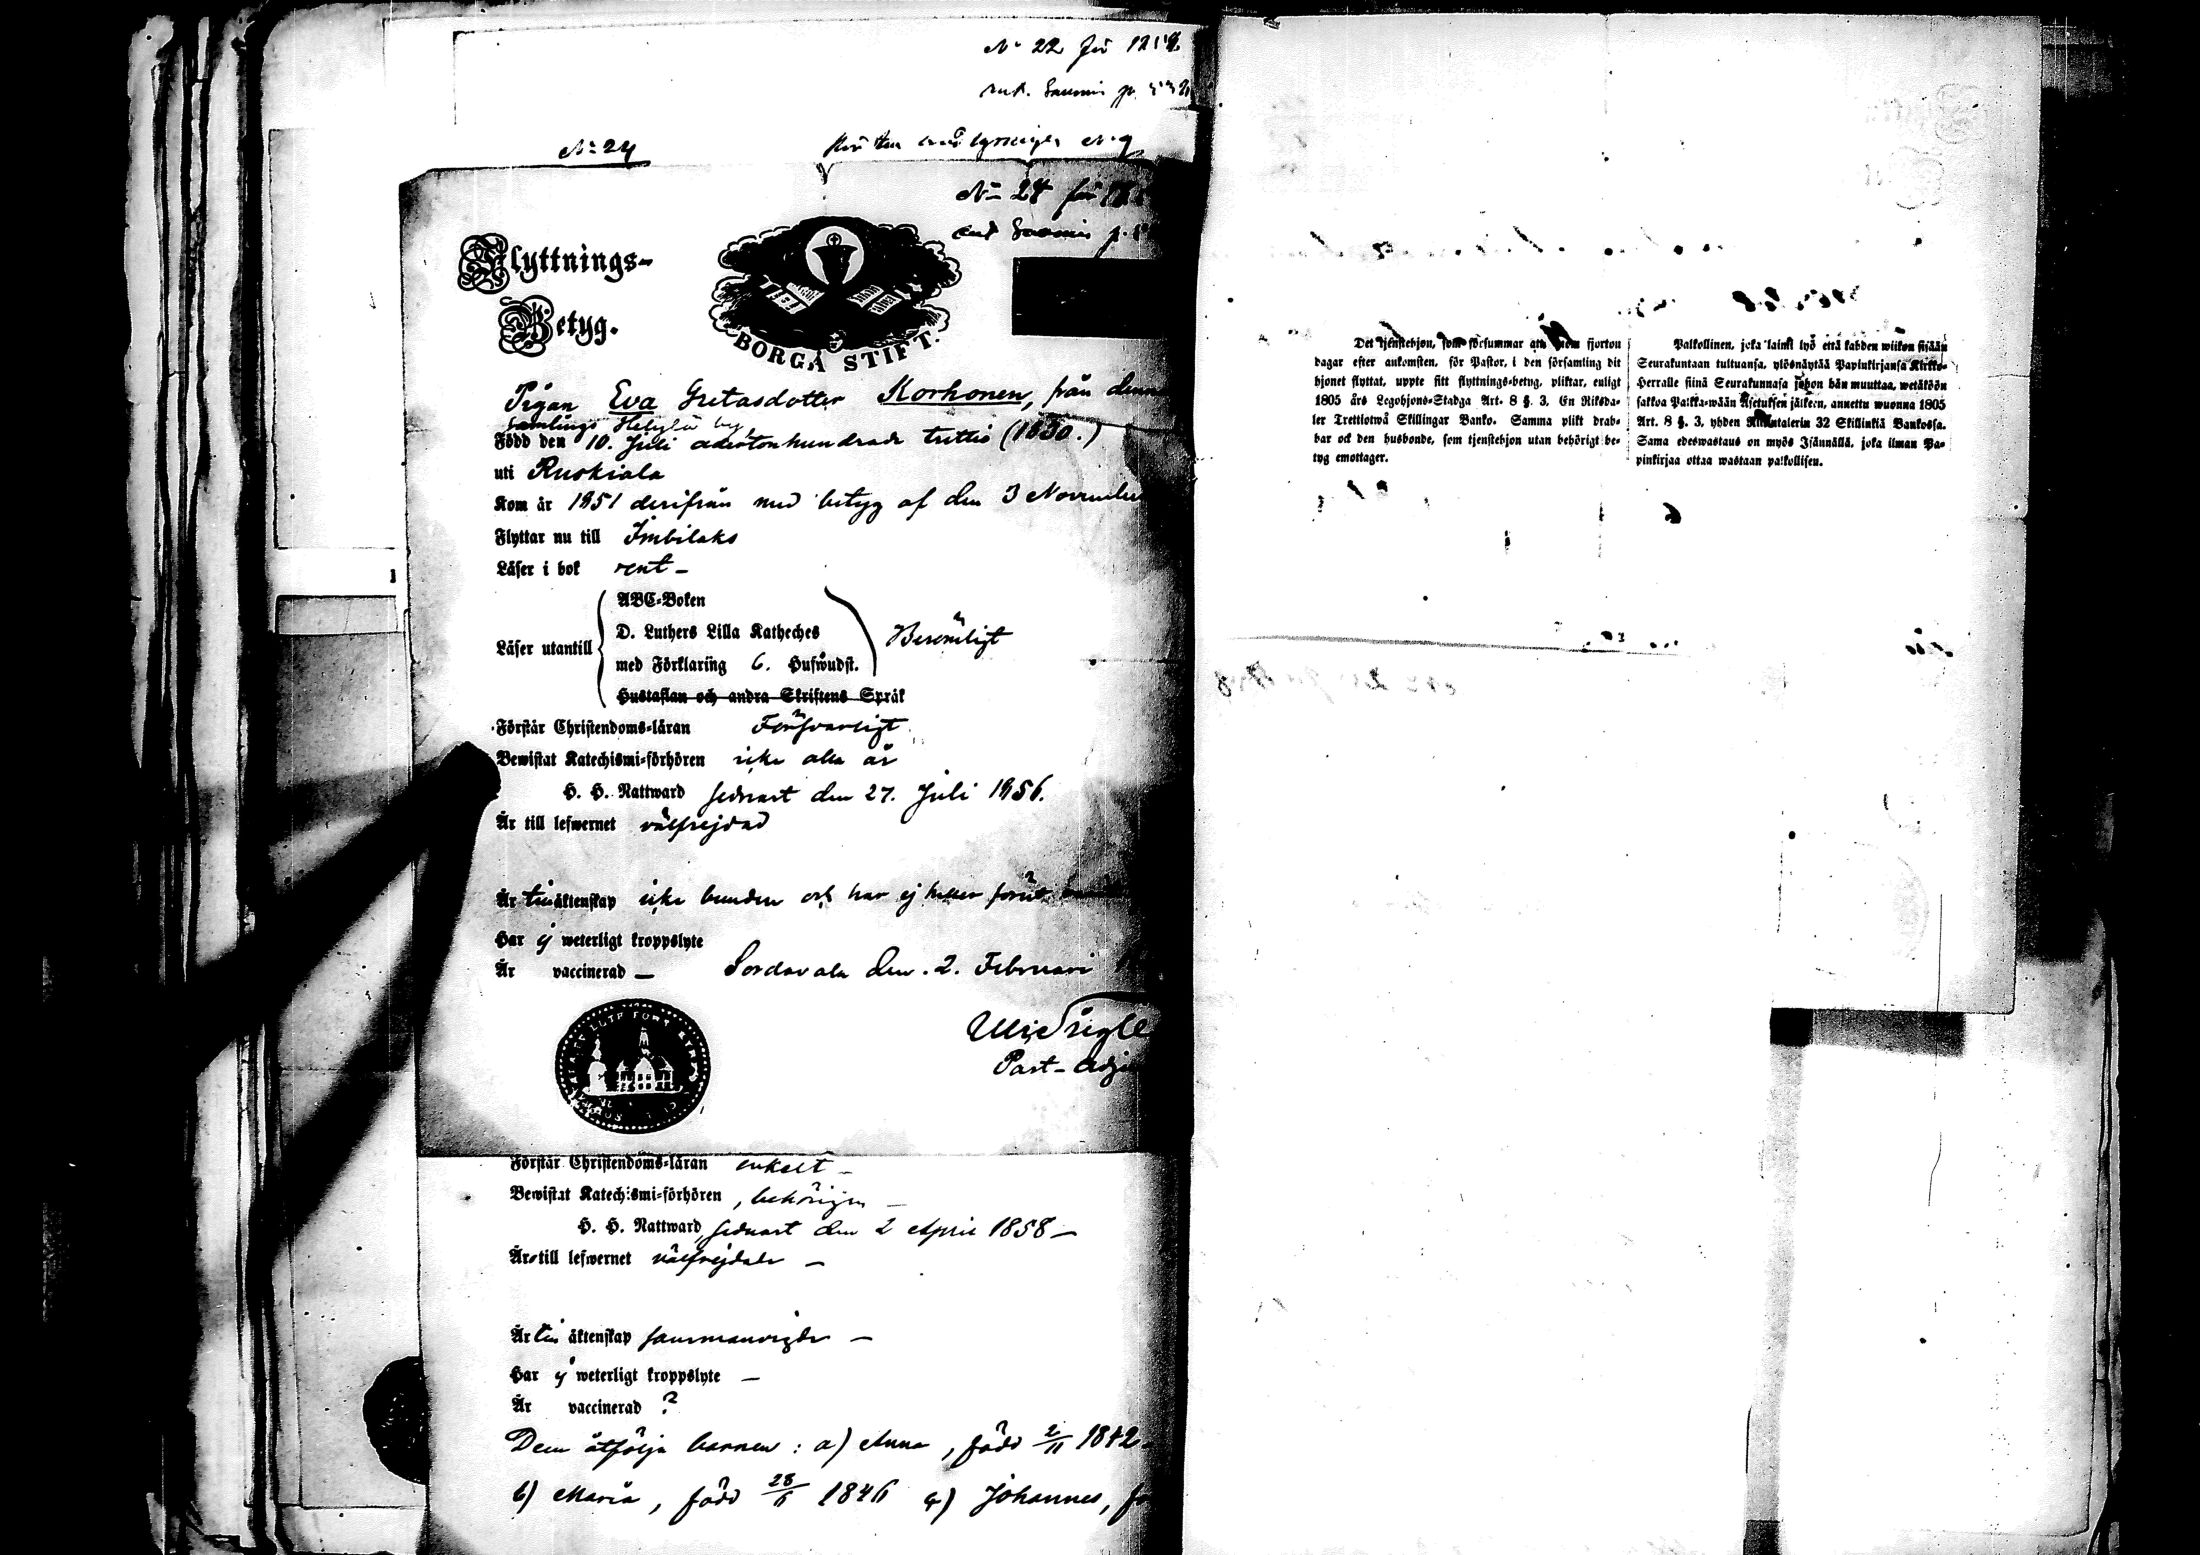 N:o 22 för 1858
Kut. Suomis p.
N:o 24
N:o 24 för
Kut Suomis p.
Flyttnings-
Betyg.
BORGÅ STIFT.
Pigan Eva Gretasdotter Korhonen, från denna
samlings Helylä by,
Född den 10. Juli adertonhundrade trettio (1830.)
uti Ruskiala
Kom år 1851 derifrån med betyg af den 3 November
Flyttar nu till Imbilaks
Läser i bok rent –
Läser utantill
ABC-Boken
D. Luthers Lilla Katheches
med Förklaring 6. Hufwudst.
Hustaflan och andra Skriftens Språk
Berömligt
Förstår Christendoms-läran Försvarligt
Bewistat Katechismi-förhören icke alla år
H. H. Nattward sednast den 27. Juli 1856.
Är till lefwernet välfrejdad
Är till äktenskap icke bunden och har ej heller förut
Har ej weterligt kroppslyte
Är vaccinerad –
Sordavala den. 2. Februari
Past- Adj
Förstår Christendoms-läran enkelt –
Bewistat Katechismi-förhören, behörigen –
H. H. Nattward, sednast den 2 April 1858 –
Är till lefwernet välfrejdade –
Är till äktenskap sammanvigde –
Har ej weterligt kroppslyte –
Är vaccinerad ?
Dem åtfölja barnen: a) Anna, född 2/11 1842
b) Maria, född 28/6 1846 c) Johannes, fö
Det tjenstehjon, som försummar att inom fjorton
dagar efter ankomsten, för Pastor, i den församling dit
hjonet flyttat, uppte sitt flyttnings-betyg, pliktar, enligt
1805 års Legohjons-Stadga Art. 8 §. 3. En Riksda-
ler Trettiotwå Skillingar Banko. Samma plikt drab-
bar ock den husbonde, som tjenstehjon utan behörigt be-
tyg emottager.
Palkollinen, joka lainki lyö että kahden wiikon sisään
Seurakuntaan tultuansa, ylösnäytää Papinkirjansa Kirkko-
Herralle siinä Seurakunnasa johon hän muuttaa, wetäköön
sakkoa Palkka-wään Asetuksen jälkeen, annettu wuonna 1805
Art. 8 §. 3. yhden Riksntalerin 32 Skillinkiä Bankossa.
Sama edeswastaus on myös Isännällä, joka ilman Pa-
pinkirjaa ottaa wastaan palkollisen.